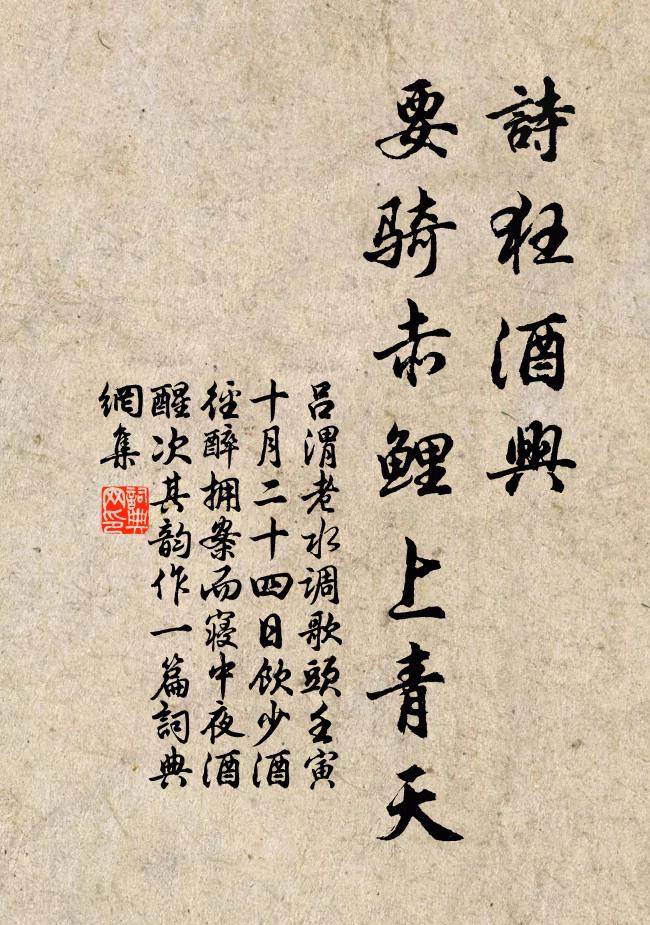 詩狂酒興
要骑赤鲤上青天
吕渭老水调歌頭壬寅
十月二十四日飲少酒
径醉拥案而寝中夜酒
醒次其韵作一篇詞典
網集
詞典
网印